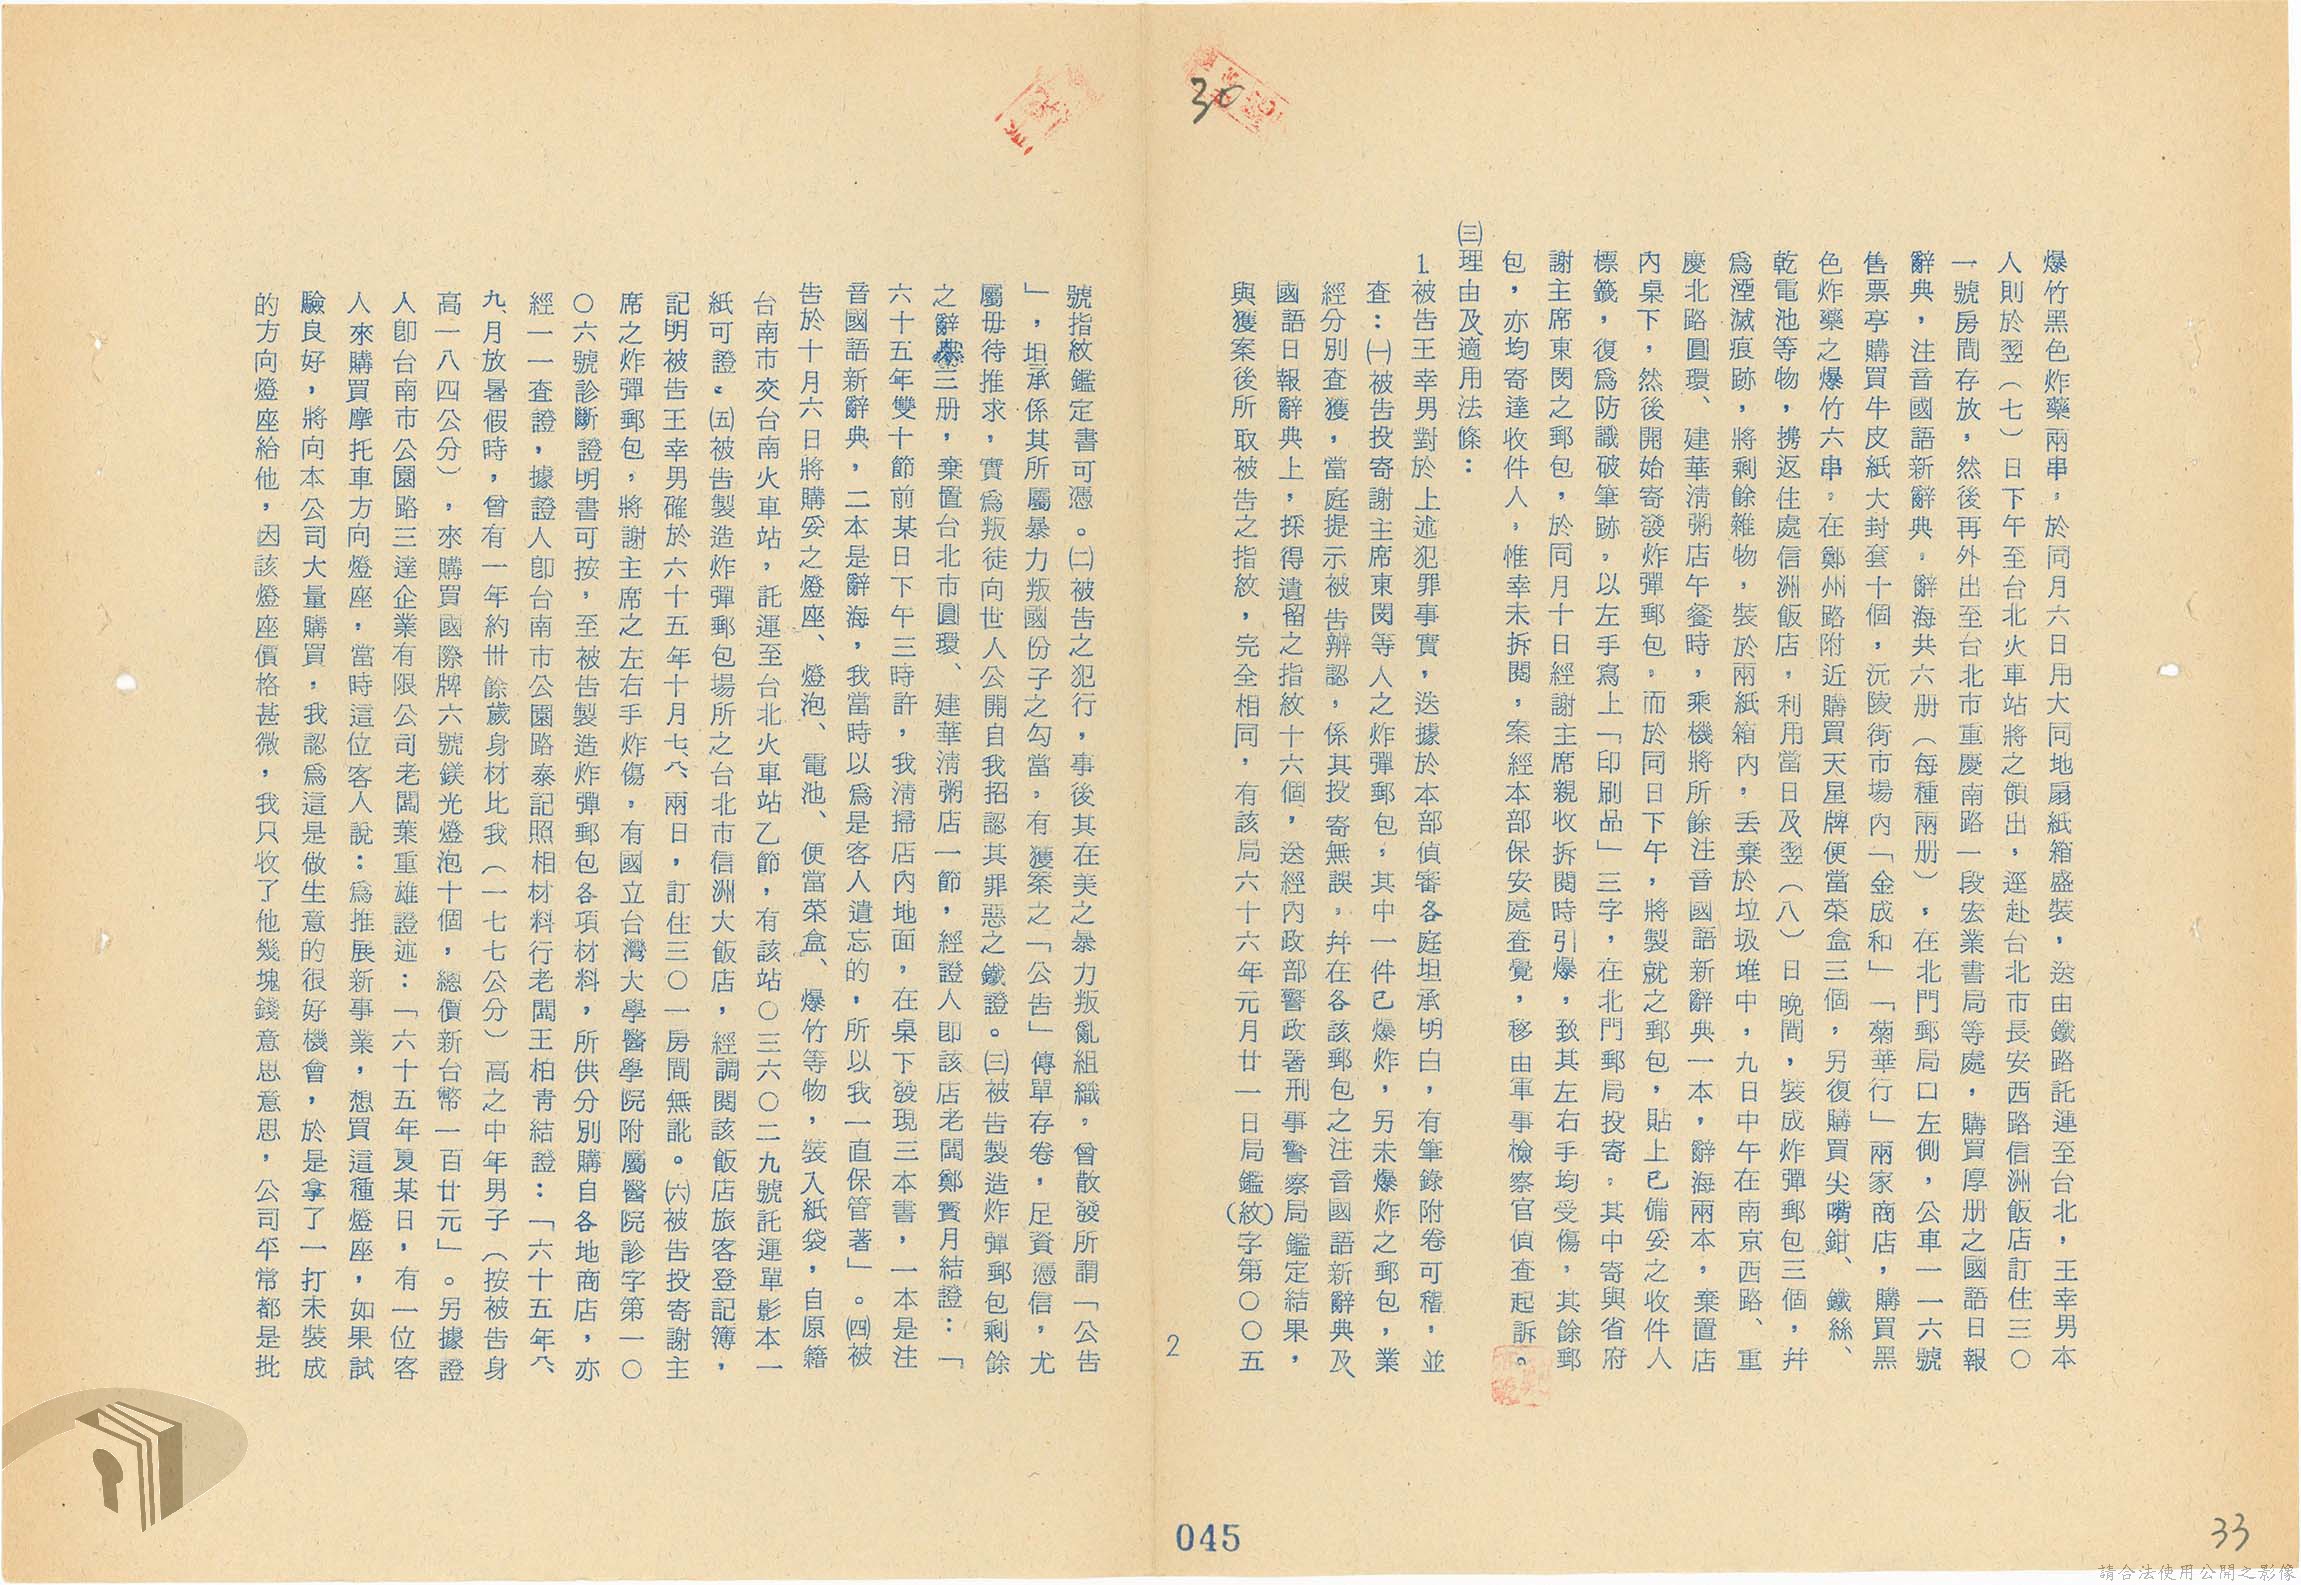 爆竹黑色炸藥兩串，於同月六日用大同地扇紙箱盛裝，送由鐵路託運至台北，王幸男本
人則於翌（七）日下午至台北火車站將之領出，逕赴台北市長安西路信洲飯店訂住三〇
一號房間存放，然後再外出至台北市重慶南路一段宏業書局等處，購買厚册之國語日報
辭典，注音國語新辭典，辭海共六册（每種兩册），在北門郵局口左側，公車一一六號
售票亭購買牛皮紙大封套十個，沅陵街市場內「金成和」「菊華行」兩家商店，購買黑
色炸藥之爆竹六串，在鄭州路附近購買天星牌便當菜盒三個，另復購買尖嘴鉗、鐵絲、
乾電池等物，携返住處信洲飯店，利用當日及翌（八）日晚間，裝成炸彈郵包三個，幷
為湮滅痕跡，將剩餘雜物，裝於兩紙箱內，丟棄於垃圾堆中，九日中午在南京西路、重
慶北路圓環、建華淸粥店午餐時，乘機將所餘注音國語新辭典一本，辭海兩本，棄置店
內桌下，然後開始寄發炸彈郵包，而於同日下午，將製就之郵包，貼上已備妥之收件人
標籤，復為防識破筆跡，以左手寫上「印刷品」三字，在北門郵局投寄，其中寄與省府
謝主席東閔之郵包，於同月十日經謝主席親收拆閱時引爆，致其左右手均受傷，其餘郵
包，亦均寄達收件人，惟幸未拆閱，案經本部保安處查覺，移由軍事檢察官偵查起訴。
㈢理由及適用法條：
1.被告王幸男對於上述犯罪事實，迭據於本部偵審各庭坦承明白，有筆錄附卷可稽，並
查：㈠被告投寄謝主席東閔等人之炸彈郵包，其中一件已爆炸，另未爆炸之郵包，業
經分別查獲，當庭提示被告辨認，係其投寄無誤，幷在各該郵包之注音國語新辭典及
國語日報辭典上，採得遺留之指紋十六個，送經內政部警政署刑事警察局鑑定結果，
與獲案後所取被告之指紋，完全相同，有該局六十六年元月廿一日局鑑（紋）字第〇〇五
2
號指紋鑑定書可憑。㈡被告之犯行，事後其在美之暴力叛亂組織，曾散發所謂「公告
」，坦承係其所屬暴力叛國份子之勾當，有獲案之「公告」傳單存卷，足資憑信，尤
屬毋待推求，實為叛徒向世人公開自我招認其罪惡之鐵證。㈢被告製造炸彈郵包剩餘
之辭典三册，棄置台北市圓環、建華淸粥店一節，經證人卽該店老闆鄭寶月結證：「
六十五年雙十節前某日下午三時許，我淸掃店內地面，在桌下發現三本書，一本是注
音國語新辭典，二本是辭海，我當時以為是客人遺忘的，所以我一直保管著」。㈣被
告於十月六日將購妥之燈座、燈泡、電池、便當菜盒、爆竹等物，裝入紙袋，自原籍
台南市交台南火車站，託運至台北火車站乙節，有該站〇三六〇二九號託運單影本一
紙可證。㈤被告製造炸彈郵包場所之台北市信洲大飯店，經調閱該飯店旅客登記簿，
記明被告王幸男確於六十五年十月七八兩日，訂住三〇一房間無訛。㈥被告投寄謝主
席之炸彈郵包，將謝主席之左右手炸傷，有國立台灣大學醫學院附屬醫院診字第一〇
〇六號診斷證明書可按，至被告製造炸彈郵包各項材料，所供分別購自各地商店，亦
經一一查證，據證人卽台南市公園路泰記照相材料行老闆王柏靑結證：「六十五年八、
九月放暑假時，曾有一年約卅餘歲身材比我（一七七公分）高之中年男子（按被告身
高一八四公分），來購買國際牌六號鎂光燈泡十個，總價新台幣一百廿元」。另據證
人卽台南市公園路三達企業有限公司老闆葉重雄證述：「六十五年夏某日，有一位客
人來購買摩托車方向燈座，當時這位客人說：為推展新事業，想買這種燈座，如果試
驗良好，將向本公司大量購買，我認為這是做生意的很好機會，於是拿了一打未裝成
的方向燈座給他，因該燈座價格甚微，我只收了他幾塊錢意思意思，公司平常都是批
30
045
33
請合法使用公開之影像